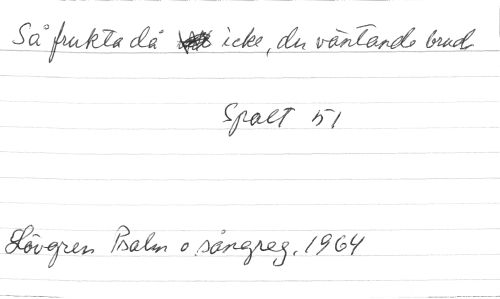 Så frukta då icke, du väntande brud
Spalt 51
Lövgren Psalm o. sångreg. 1964